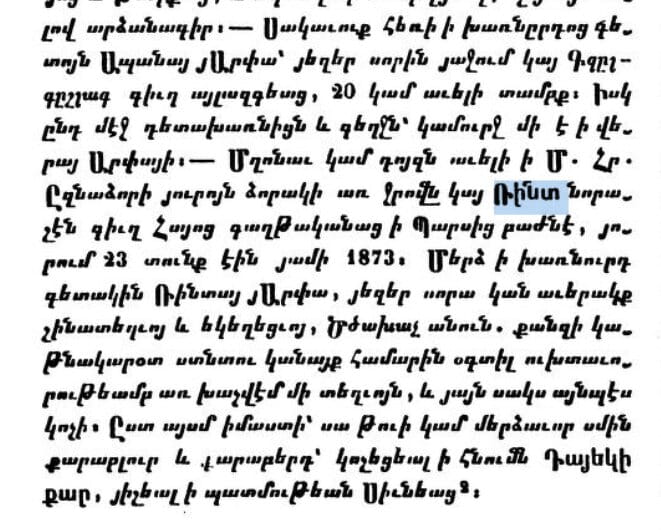 լով արձանագիր։— Սակաւուք հեռի ի խառնըրդոց գե֊
տոյն Ապանայ յԱրփա՝ յեզեր սորին յաջում կայ Գզըլ֊
գըշլագ գիւղ այլազգեաց, 20 կամ աւելի տամբք։ Իսկ
ընդ մէջ գետախառնիցն և գեղջն՝ կամուրջ մի է ի վե֊
րայ Արփայի։— Մղոնաւ կամ դոյզն աւելի ի Մ. Հր.
Ըզնաձորի յուրոյն ձորակի առ ջրովն կայ Ռինտ նորա֊
շէն գիւղ Հայոց գաղթականաց ի Պարսից բաժնէ, յո֊
րում 23 տունք էին յամի 1873։ Մերձ ի խառնուրդ
գետակին Ռինտայ յԱրփա, յեզեր սորա կան աւերակք
շինատեղւոյ և եկեղեցւոյ, Ծծախաչ անուն. քանզի կա֊
թնակարօտ ստնտու կանայք համարին օգտիլ ուխտաւո֊
րութեամբ առ խաչվէմ մի տեղւոյն, և յայն սակս այնպէս
կոչի։ Ըստ այսմ իմաստի՝ սա թուի կամ մերձաւոր սմին
քարաբլուր և քարաբերդ՝ կոչեցեալ ի հնումն Դայեկի
քար, յիշեալ ի պատմութեան Սիւնեաց²։